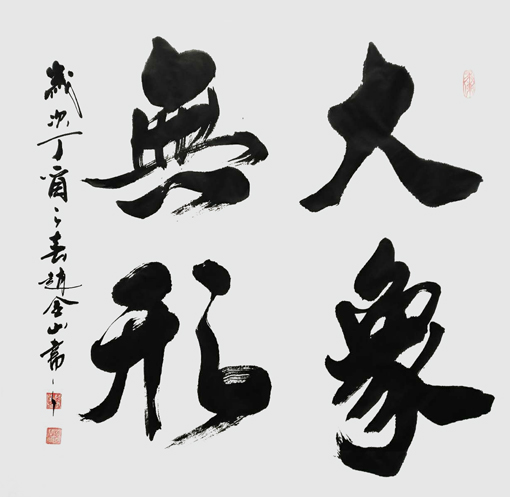 大象
無形
歲次丁酉之春趙金山書